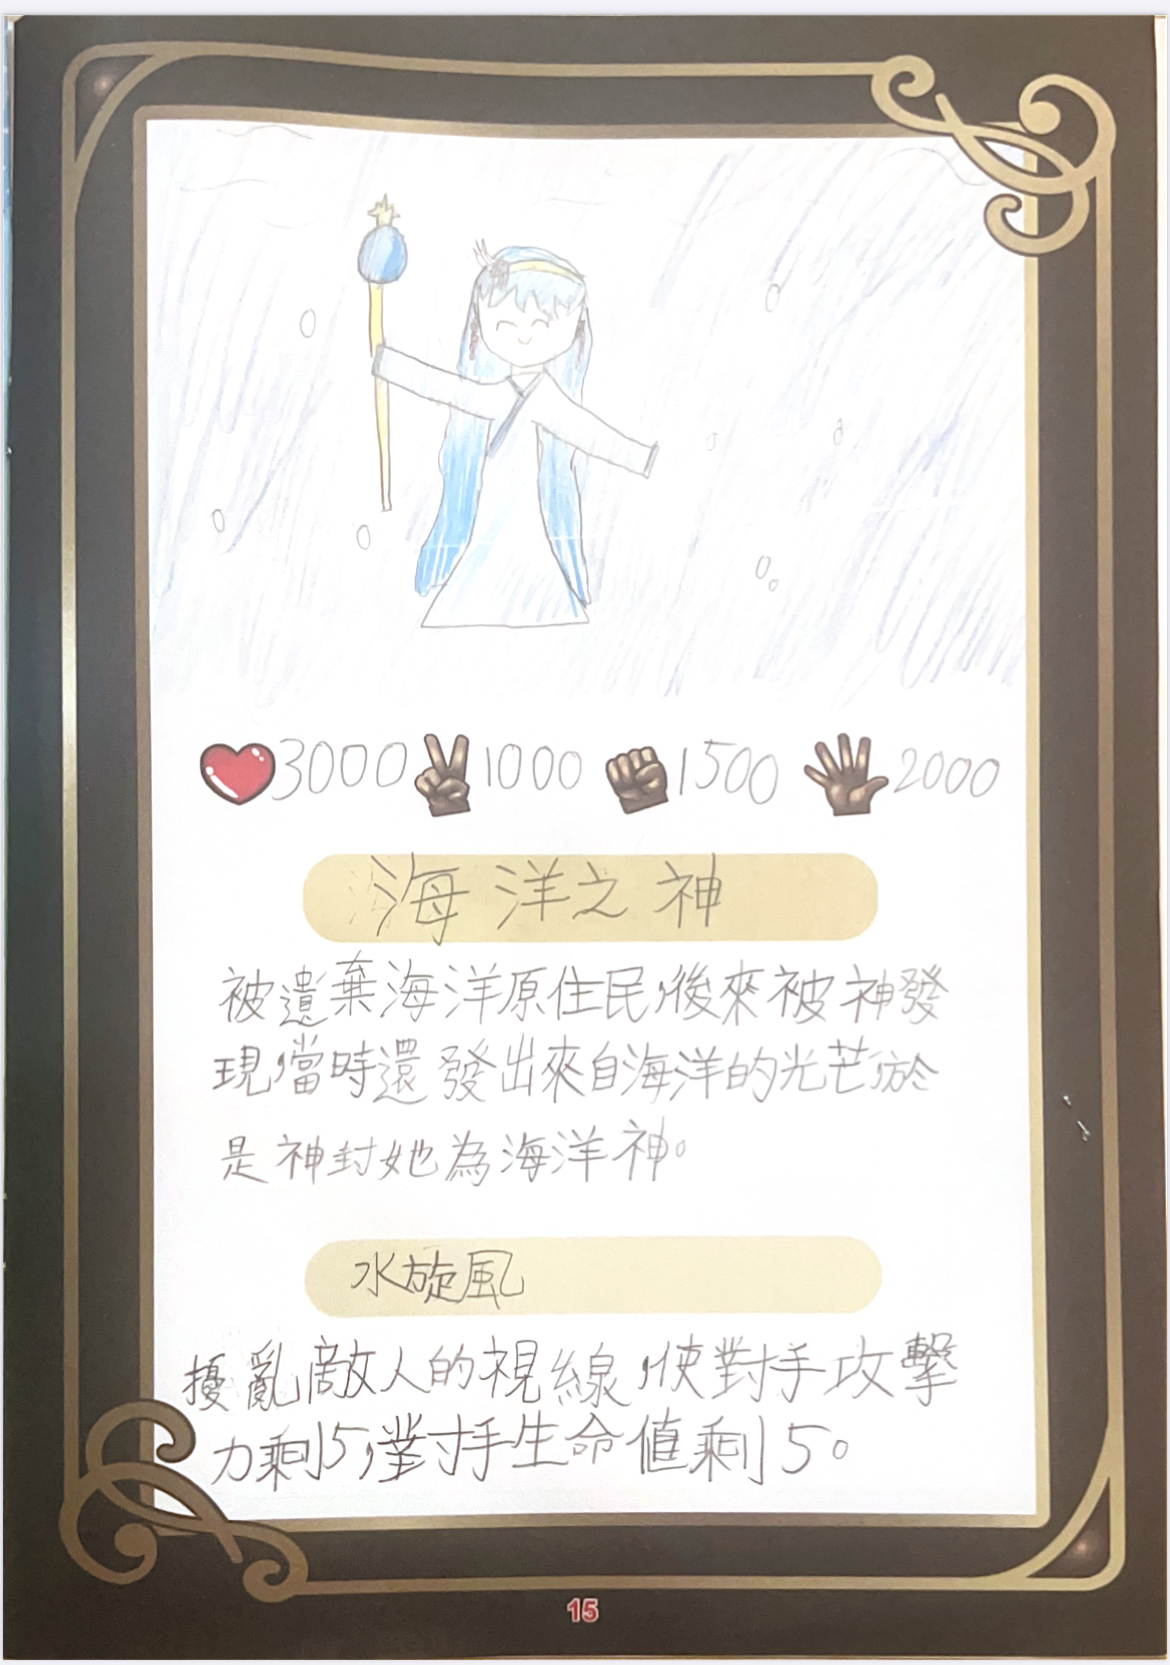 3000 1000 1500 2000
海洋之神
被遺棄海洋原住民,後來被神發
現,當時還發出來自海洋的光芒,於
是神封她為海洋神。
水旋風
擾亂敵人的視線,使對手攻擊
力剩5,對手生命值剩5。
15